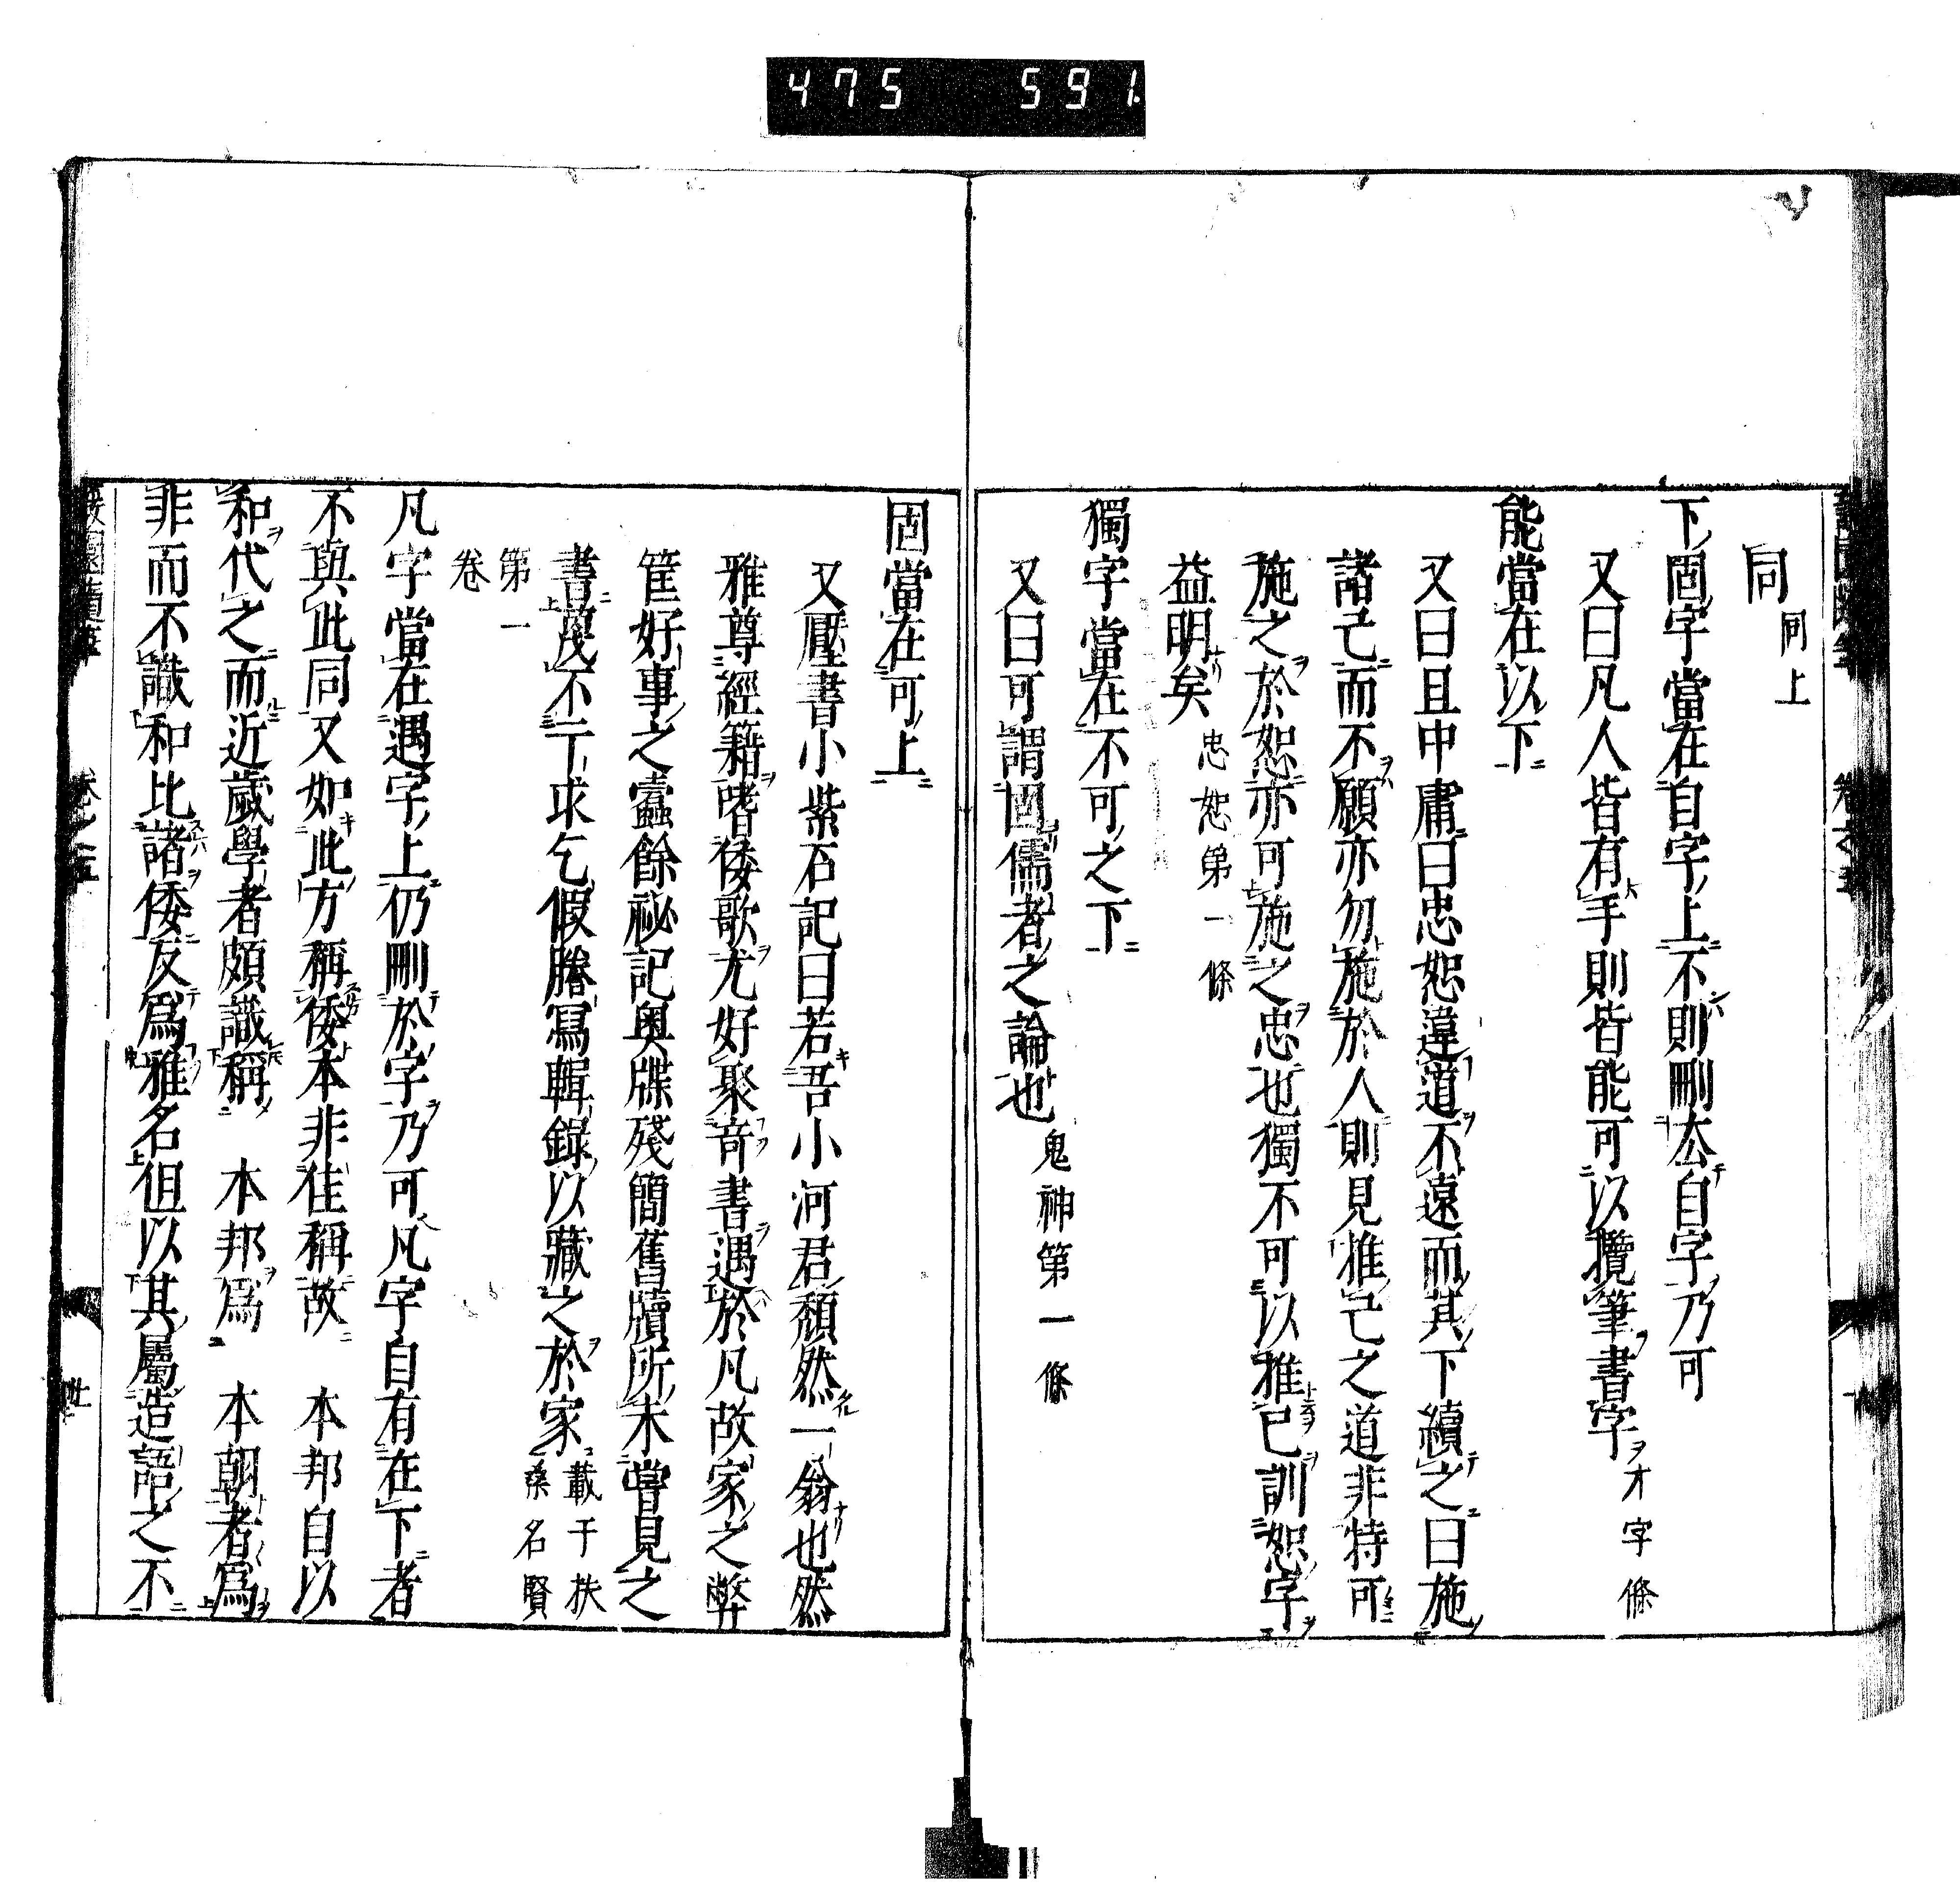 475 591
同 同上
下固字當在自字上不則刪厺自字乃可
又曰凡人皆有手則皆能可以攬筆書字 才字條
能當在以下
又曰且中庸曰忠恕違道不遠而其下續之曰施
諸己而不願亦勿施於人則見推己之道非特可
施之於恕亦可施之忠也獨不可以推己訓恕字
益明矣 忠恕第一條
獨字當在不可之下
又曰可謂固儒者之論也 鬼神第一條
固當在可上
又壓書小紫石記曰若吾小河君頽然一翁也然
雅尊經籍嗜倭歌尤好聚竒書遇於凡故家之弊
筐好事之蠹餘祕記奥牒殘簡舊牘所未嘗見之
書蔑不丁求乞假謄寫輯錄以藏之於家 載于扶
桑名賢
第一
卷
凡字當在遇字上仍刪於字乃可凡字自有在下者
不與此同又如此方稱倭本非佳稱故 本邦自以
和代之而近歲學者頗識稱 本邦爲 本朝者爲
非而不識和比諸倭反爲雅名但以其屬造語之不
卷之五